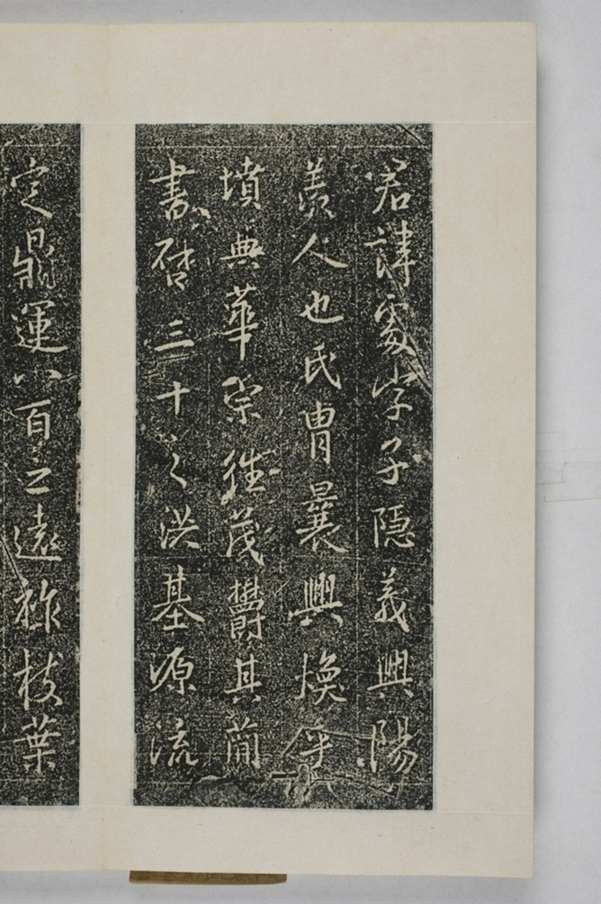 君諱處字子隱義興陽
羨人也氏胄曩興煥乎
墳典華宗往茂鬱其簡
書啓三十之洪基源流
定鼎運八百之遠祚枝葉